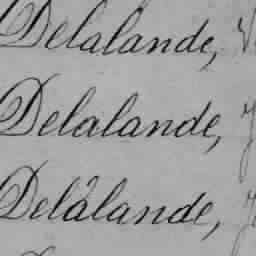 Delalande,
Delalande,
Delalande,